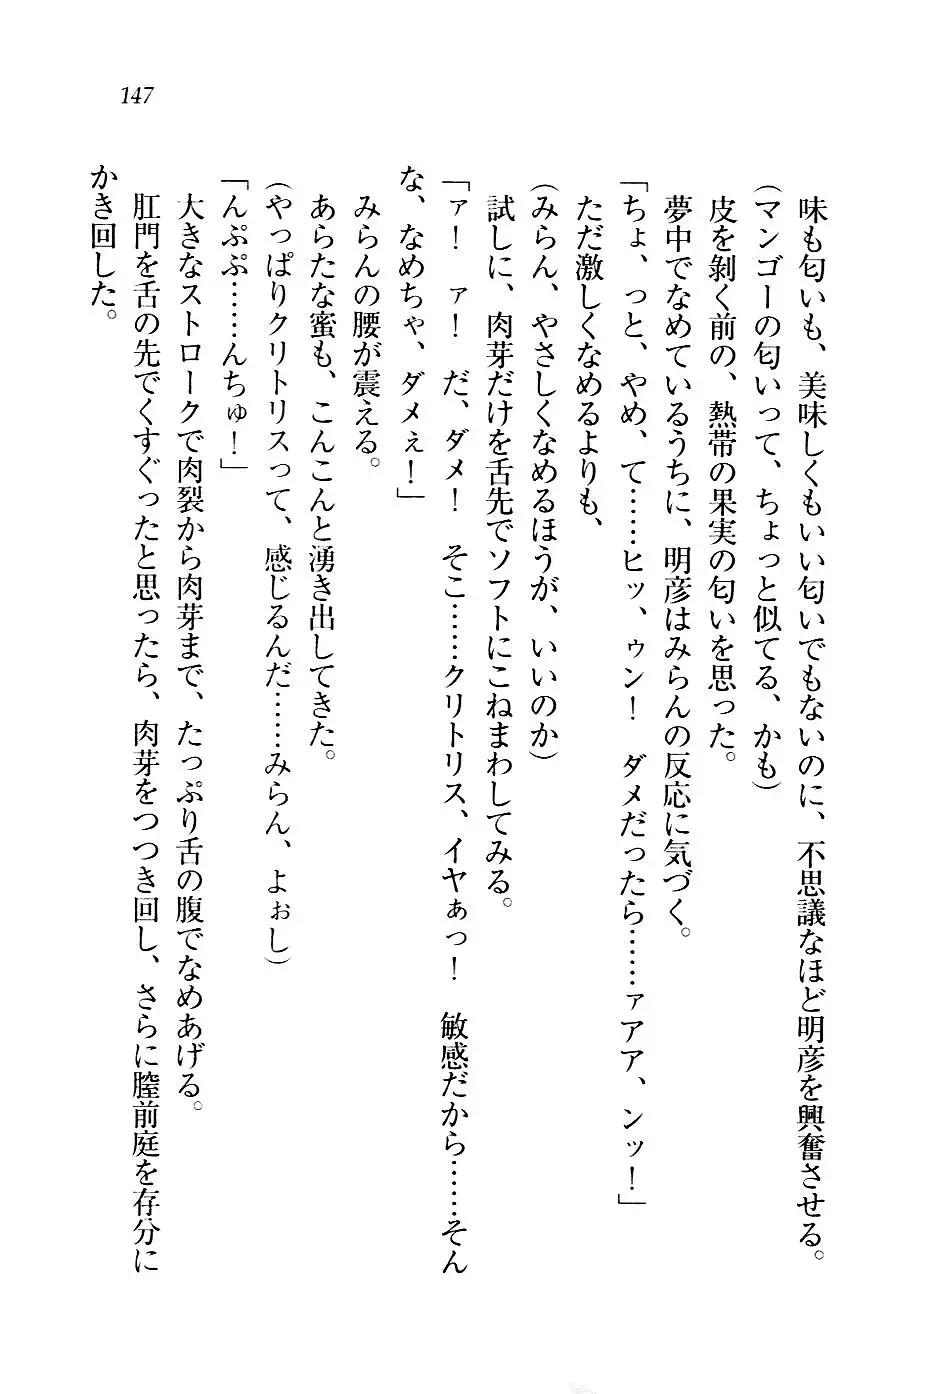 147
味も匂いも、美味しくもいい匂いでもないのに、不思議なほど明彦を興奮させる。
(マンゴーの匂いって、ちょっと似てる、かも)
皮を剝く前の、熱帯の果実の匂いを思った。
夢中でなめているうちに、明彦はみらんの反応に気づく。
「ちょ、っと、やめ、て……ヒッ、ゥン！　ダメだったら……ァアア、ンッ！」
ただ激しくなめるよりも、
(みらん、やさしくなめるほうが、いいのか)
試しに、肉芽だけを舌先でソフトにこねまわしてみる。
「ァ！　ァ！　だ、ダメ！　そこ……クリトリス、イヤぁっ！　敏感だから……そん
な、なめちゃ、ダメぇ！」
みらんの腰が震える。
あらたな蜜も、こんこんと湧き出してきた。
(やっぱりクリトリスって、感じるんだ……みらん、よぉし)
「んぷぷ……んちゅ！」
大きなストロークで肉裂から肉芽まで、たっぷり舌の腹でなめあげる。
肛門を舌の先でくすぐったと思ったら、肉芽をつつき回し、さらに膣前庭を存分に
かき回した。